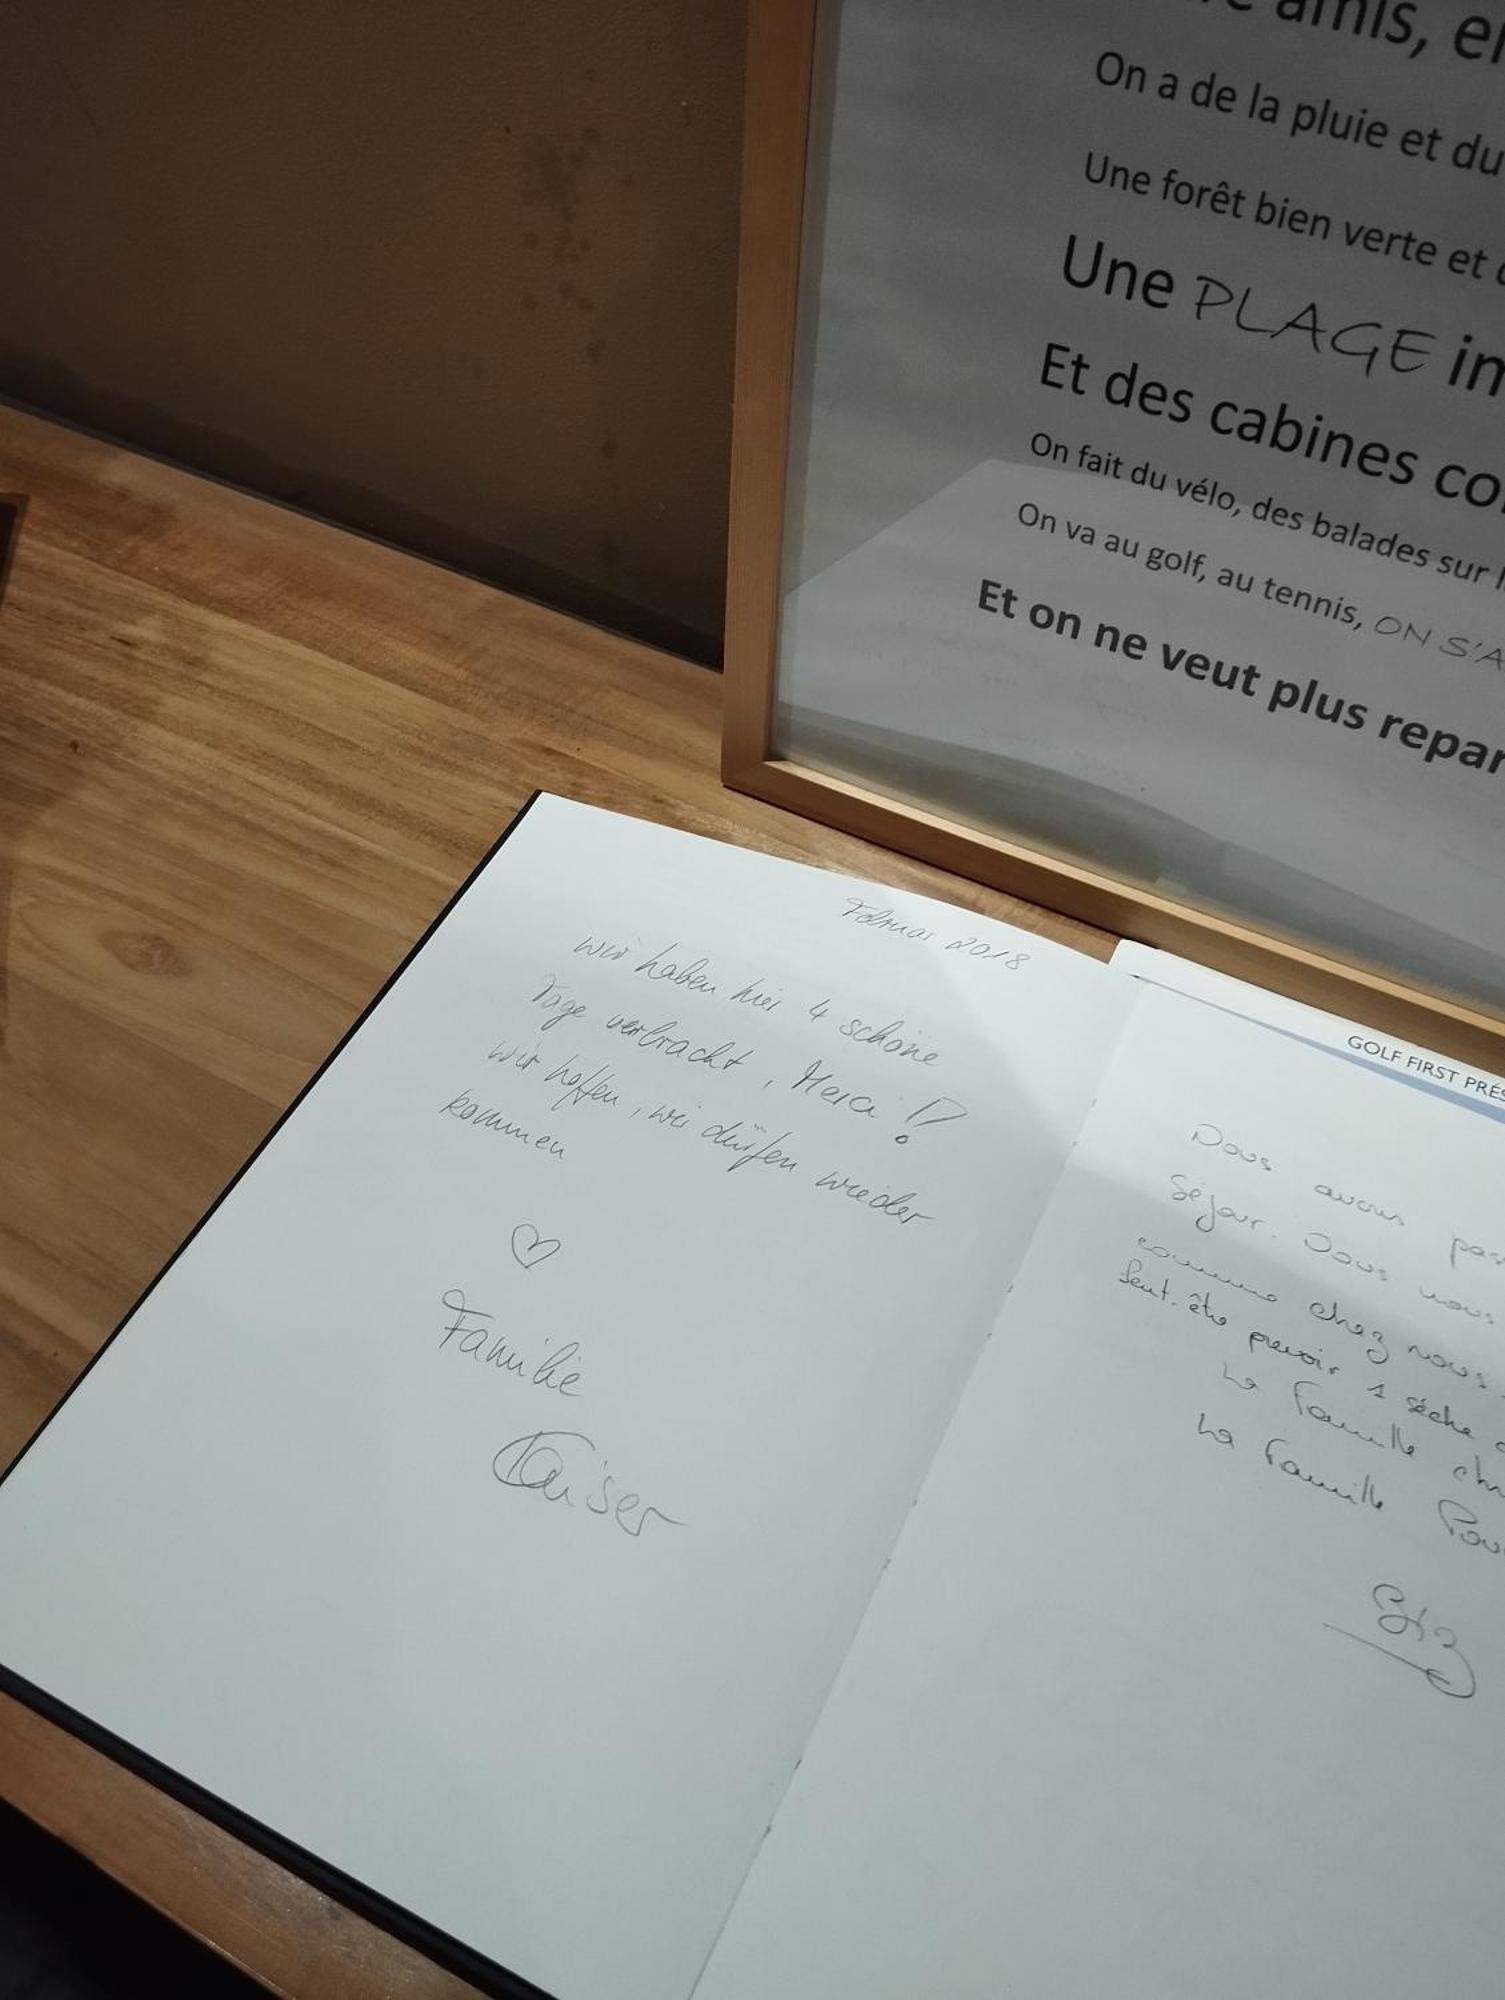 amis, en
On a de la pluie et du
Une forêt bien verte et
Une PLAGE im
Et des cabines co
On fait du vélo, des balades sur l
On va au golf, au tennis, ON S'A
Et on ne veut plus repar
Februar 2018
wir haben hier 4 schöne
Tage verbracht, Merci!!
wir hoffen, wir dürfen wieder
kommen
♡
Familie
Kaiser
GOLF FIRST PRÉS
Nous avons pas
Séjour. Nous nous
comme chez nous.
Peut-être prévoir 1 sèche
La Famille
La Famille